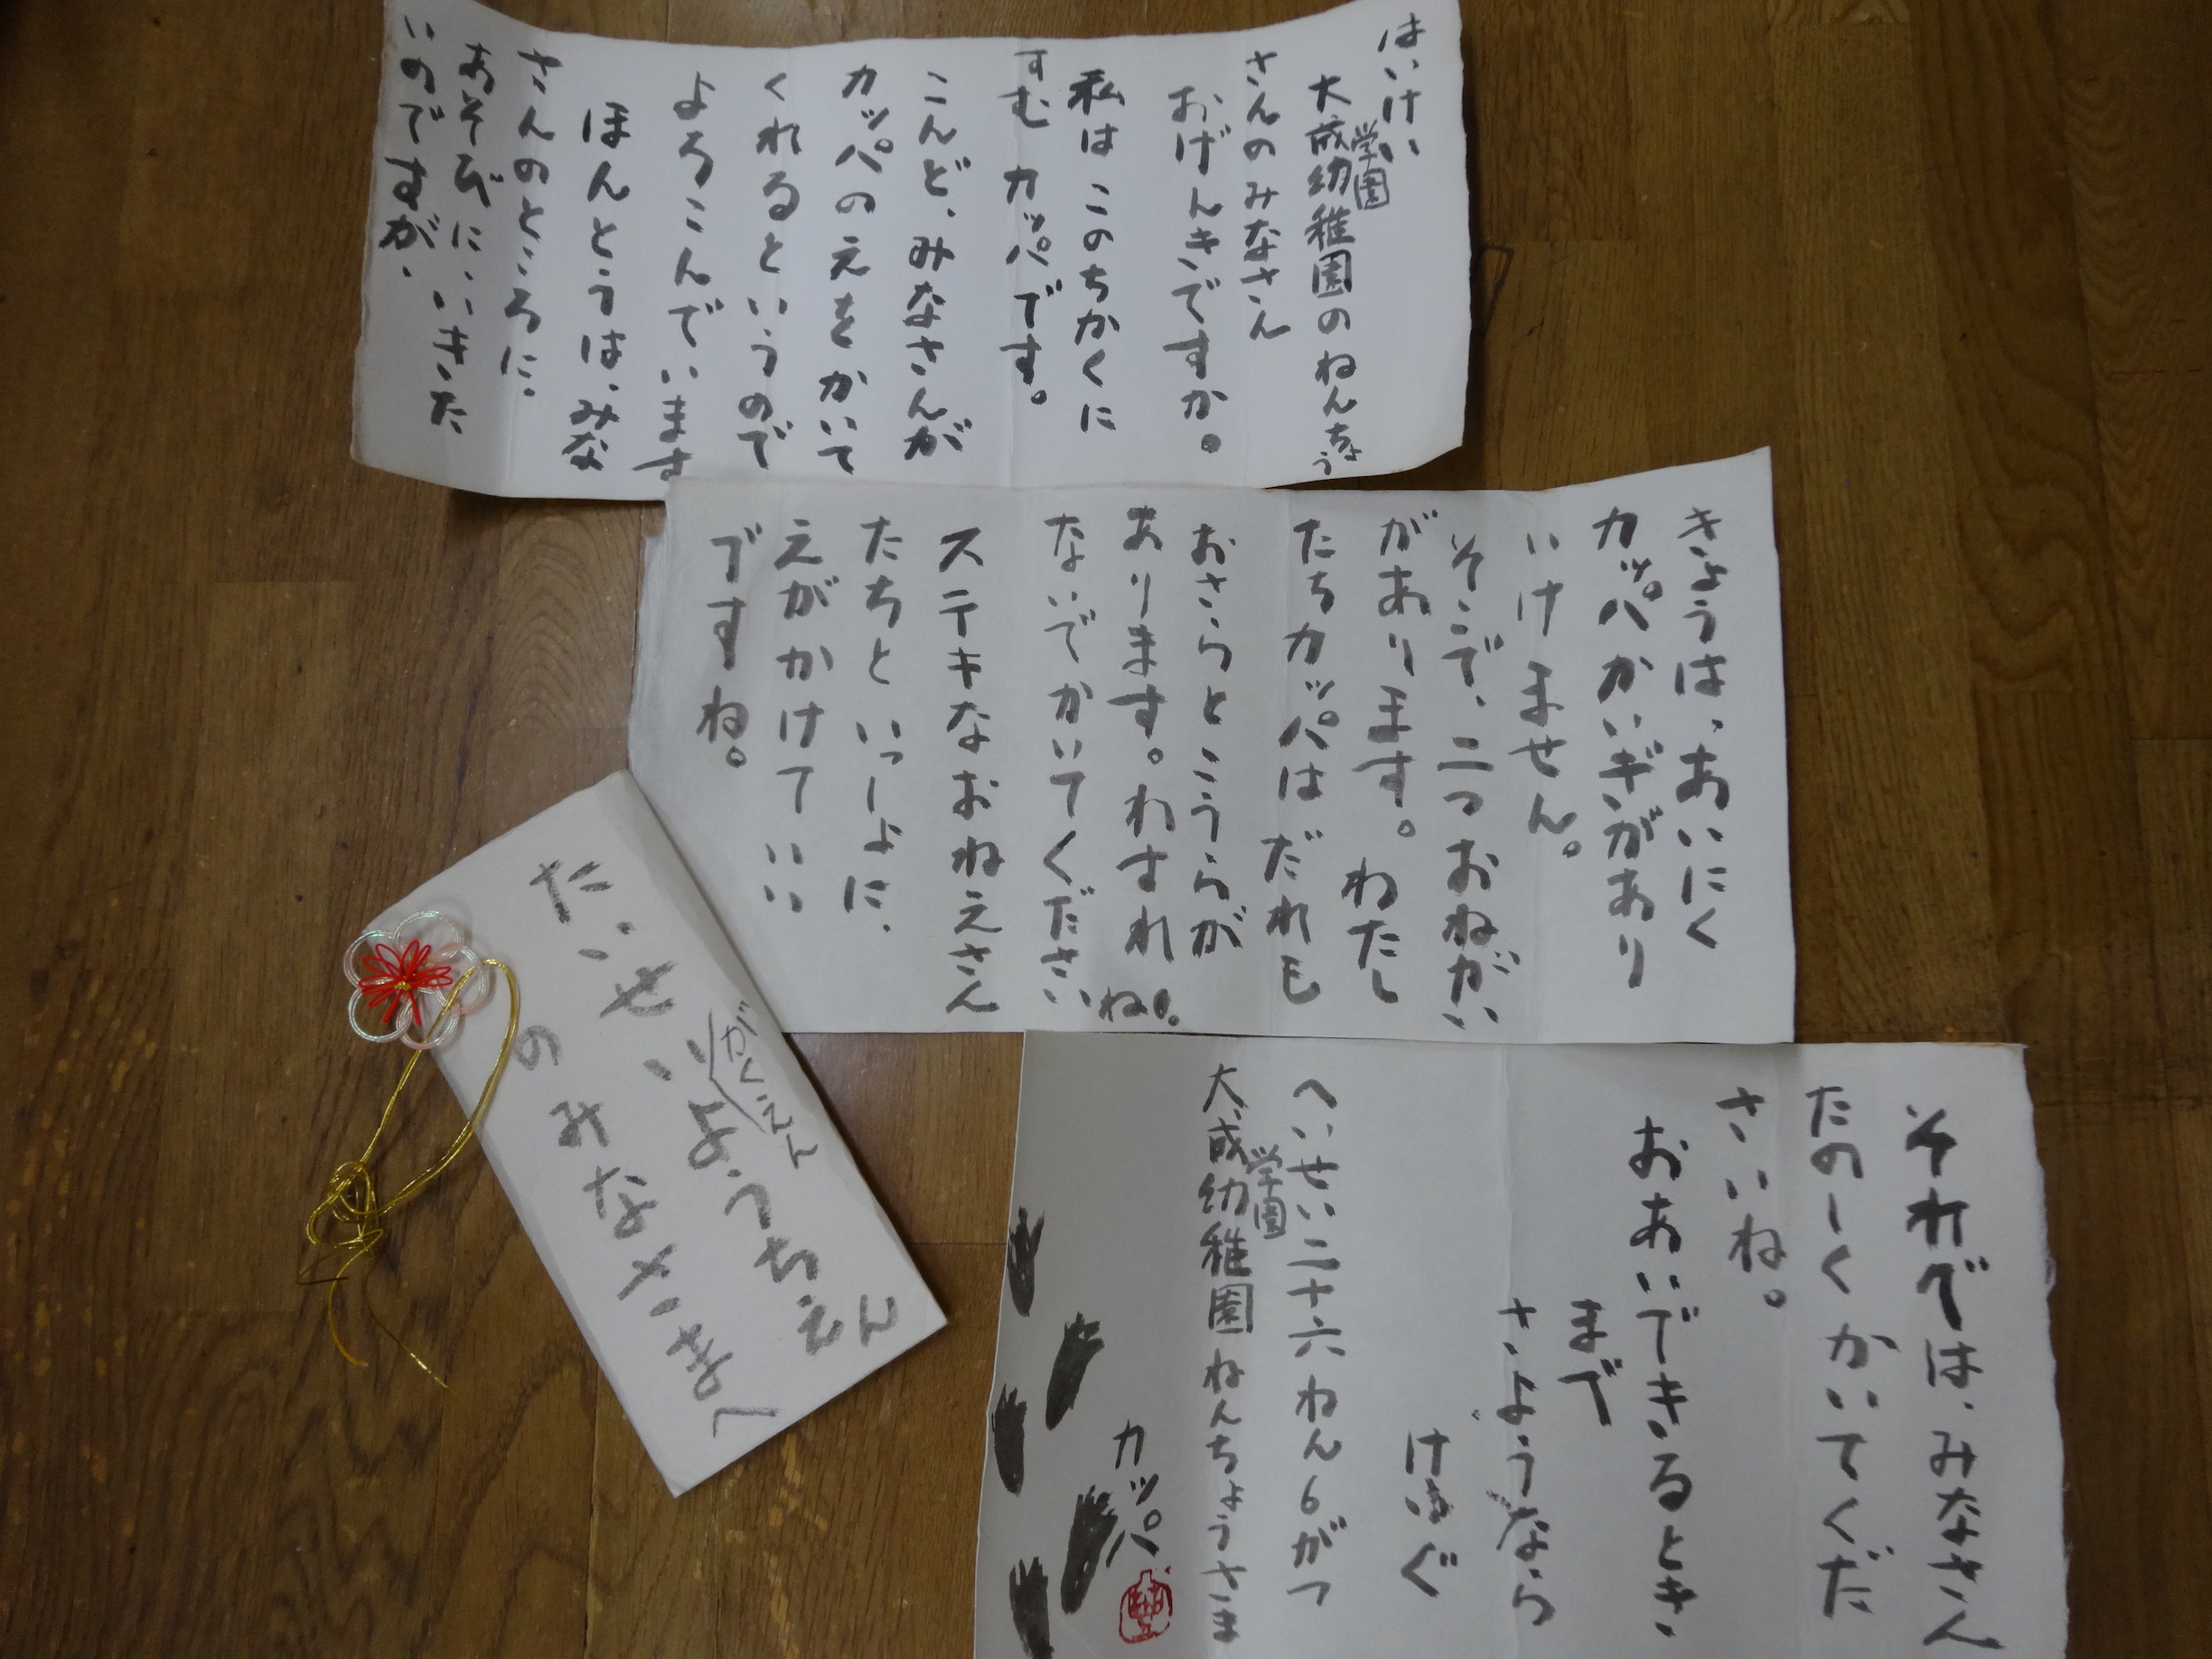 はいけい
大成学園幼稚園のねんちょう
さんのみなさん
おげんきですか。
私はこのちかくに
すむカッパです。
こんど、みなさんが
カッパのえをかいて
くれるというので
よろこんでいます
ほんとうは、みな
さんのところに、
あそびに、いきた
いのですが、
きょうは、あいにく
カッパかいぎがあり
いけません。
そこで、二つおねがい
があります。わたし
たちカッパはだれも
おさらとこうらが
あります。わすれ
ないでかいてくださいね。
ステキなおねえさん
たちといっしょに、
えがかけていい
ですね。
それでは、みなさん
たのしくかいてくだ
さいね。
おあいできるとき
まで
さようなら
けいぐ
へいせい二十六ねん6がつ
大成学園幼稚園ねんちょうさま
カッパ
たいせいがくえんようちえん
のみなさまへ